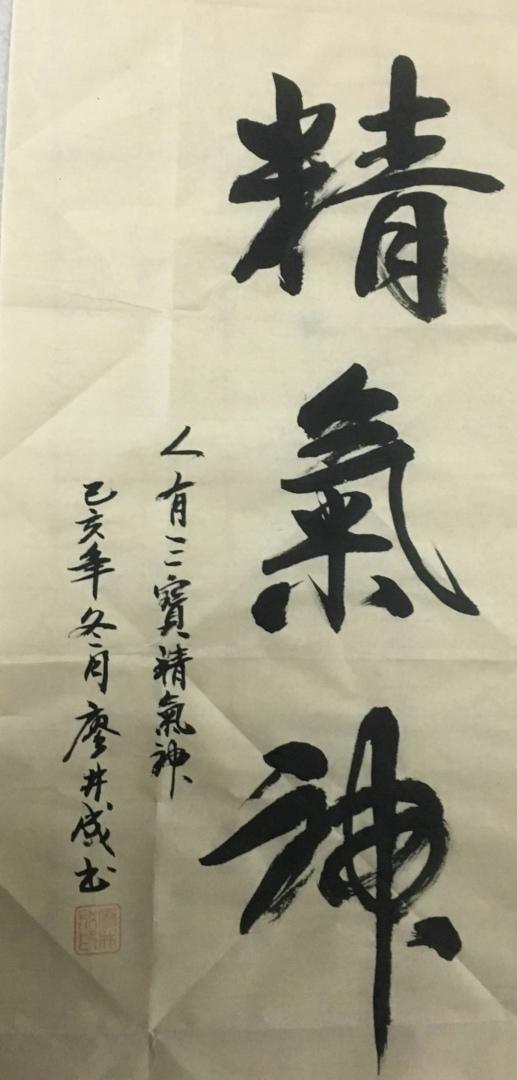 精氣神
人有三寶精氣神
己亥年冬月廖井成书